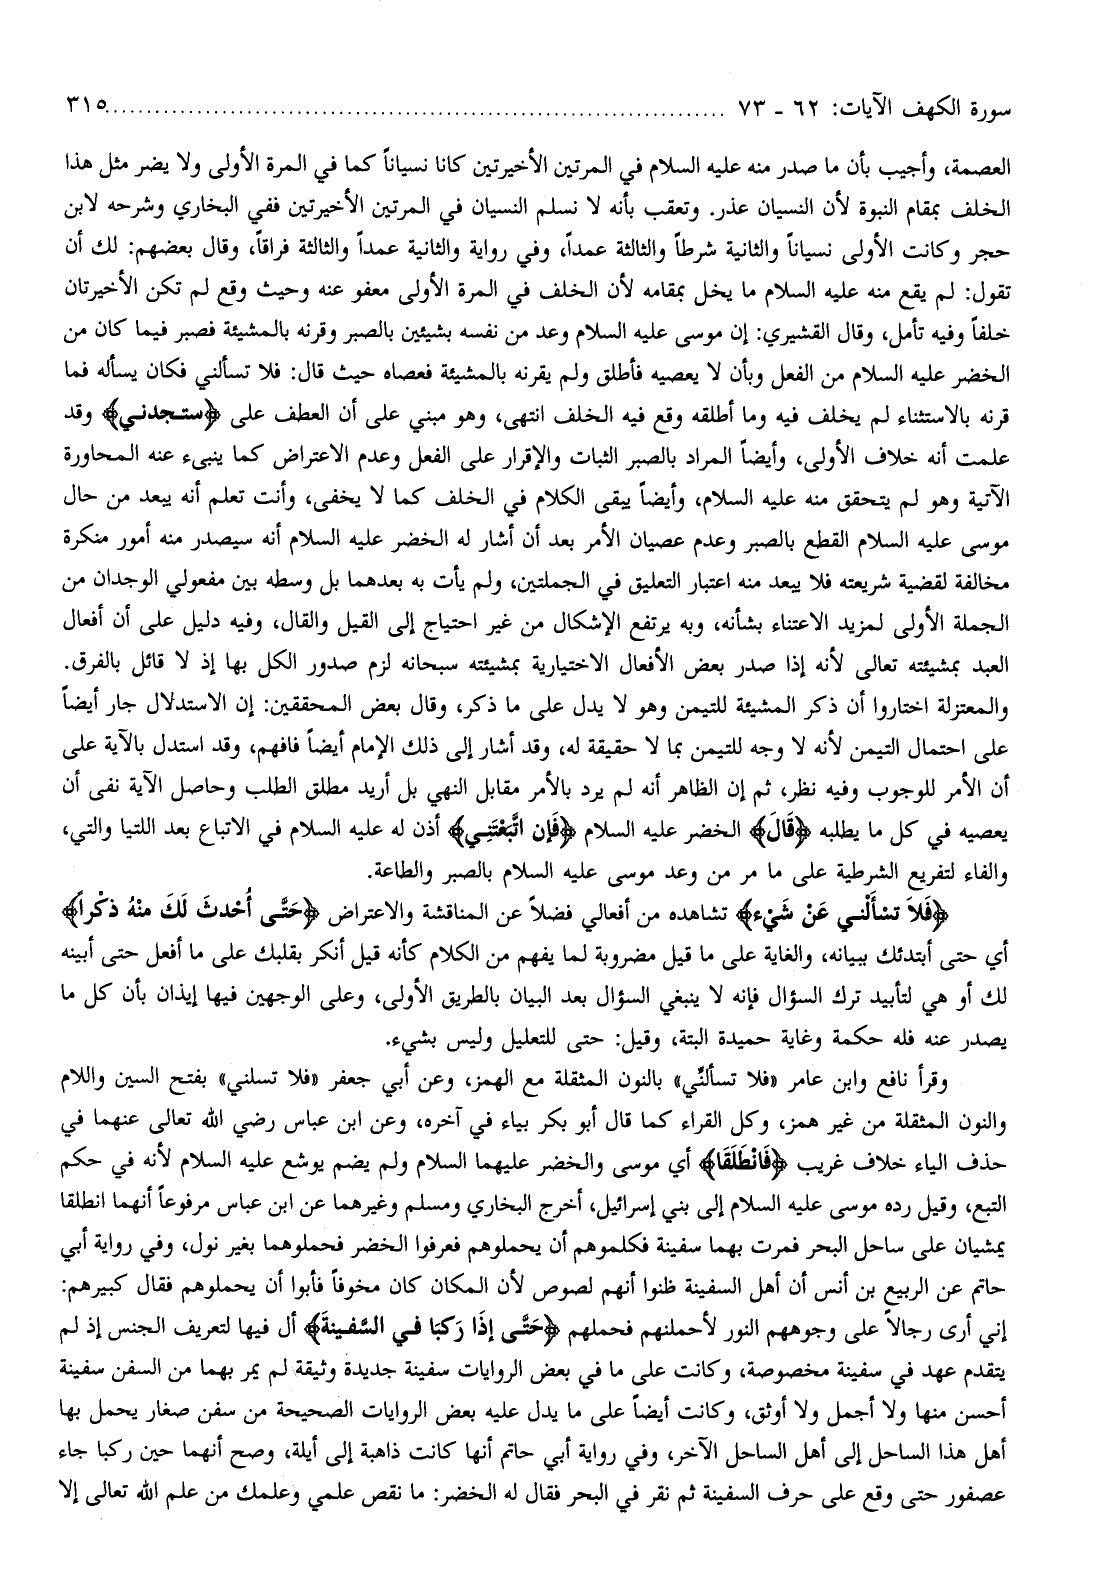 سورة الكهف الآيات: ٦٢ ـ ٧٣ ........................................................................ ٣١٥
العصمة، وأجيب بأن ما صدر منه عليه السلام في المرتين الأخيرتين كانا نسياناً كما في المرة الأولى ولا يضر مثل هذا
الخلف بمقام النبوة لأن النسيان عذر. وتعقب بأنه لا نسلم النسيان في المرتين الأخيرتين ففي البخاري وشرحه لابن
حجر وكانت الأولى نسياناً والثانية شرطاً والثالثة عمداً، وفي رواية والثانية عمداً والثالثة فراقاً، وقال بعضهم: لك أن
تقول: لم يقع منه عليه السلام ما يخل بمقامه لأن الخلف في المرة الأولى معفو عنه وحيث وقع لم تكن الأخيرتان
خلفاً وفيه تأمل، وقال القشيري: إن موسى عليه السلام وعد من نفسه بشيئين بالصبر وقرنه بالمشيئة فصبر فيما كان من
الخضر عليه السلام من الفعل وبأن لا يعصيه فأطلق ولم يقرنه بالمشيئة فعصاه حيث قال: فلا تسألني فكان يسأله فما
قرنه بالاستثناء لم يخلف فيه وما أطلقه وقع فيه الخلف انتهى، وهو مبني على أن العطف على ﴿ستجدني﴾ وقد
علمت أنه خلاف الأولى، وأيضاً المراد بالصبر الثبات والإقرار على الفعل وعدم الاعتراض كما ينبىء عنه المحاورة
الآتية وهو لم يتحقق منه عليه السلام، وأيضاً يبقى الكلام في الخلف كما لا يخفى، وأنت تعلم أنه يبعد من حال
موسى عليه السلام القطع بالصبر وعدم عصيان الأمر بعد أن أشار له الخضر عليه السلام أنه سيصدر منه أمور منكرة
مخالفة لقضية شريعته فلا يبعد منه اعتبار التعليق في الجملتين، ولم يأت به بعدهما بل وسطه بين مفعولي الوجدان من
الجملة الأولى لمزيد الاعتناء بشأنه، وبه يرتفع الإشكال من غير احتياج إلى القيل والقال، وفيه دليل على أن أفعال
العبد بمشيئته تعالى لأنه إذا صدر بعض الأفعال الاختيارية بمشيئته سبحانه لزم صدور الكل بها إذ لا قائل بالفرق.
والمعتزلة اختاروا أن ذكر المشيئة للتيمن وهو لا يدل على ما ذكر، وقال بعض المحققين: إن الاستدلال جار أيضاً
على احتمال التيمن لأنه لا وجه للتيمن بما لا حقيقة له، وقد أشار إلى ذلك الإمام أيضاً فافهم، وقد استدل بالآية على
أن الأمر للوجوب وفيه نظر، ثم إن الظاهر أنه لم يرد بالأمر مقابل النهي بل أريد مطلق الطلب وحاصل الآية نفى أن
يعصيه في كل ما يطلبه ﴿قَالَ﴾ الخضر عليه السلام ﴿فَإن اتَّبَعْتَنِي﴾ أذن له عليه السلام في الاتباع بعد اللتيا والتي،
والفاء لتفريع الشرطية على ما مر من وعد موسى عليه السلام بالصبر والطاعة.
﴿فَلاَ تسْأَلْني عَنْ شَيْء﴾ تشاهده من أفعالي فضلاً عن المناقشة والاعتراض ﴿حَتَّى أُحْدثَ لَكَ منْهُ ذكْراً﴾
أي حتى أبتدئك ببيانه، والغاية على ما قيل مضروبة لما يفهم من الكلام كأنه قيل أنكر بقلبك على ما أفعل حتى أبينه
لك أو هي لتأبيد ترك السؤال فإنه لا ينبغي السؤال بعد البيان بالطريق الأولى، وعلى الوجهين فيها إيذان بأن كل ما
يصدر عنه فله حكمة وغاية حميدة البتة، وقيل: حتى للتعليل وليس بشيء.
وقرأ نافع وابن عامر «فلا تسألنّي» بالنون المثقلة مع الهمز، وعن أبي جعفر «فلا تسلني» بفتح السين واللام
والنون المثقلة من غير همز، وكل القراء كما قال أبو بكر بياء في آخره، وعن ابن عباس رضي الله تعالى عنهما في
حذف الياء خلاف غريب ﴿فَانْطَلَقَا﴾ أي موسى والخضر عليهما السلام ولم يضم يوشع عليه السلام لأنه في حكم
التبع، وقيل رده موسى عليه السلام إلى بني إسرائيل، أخرج البخاري ومسلم وغيرهما عن ابن عباس مرفوعاً أنهما انطلقا
يمشيان على ساحل البحر فمرت بهما سفينة فكلموهم أن يحملوهم فعرفوا الخضر فحملوهما بغير نول، وفي رواية أبي
حاتم عن الربيع بن أنس أن أهل السفينة ظنوا أنهم لصوص لأن المكان كان مخوفاً فأبوا أن يحملوهم فقال كبيرهم:
إني أرى رجالاً على وجوههم النور لأحملنهم فحملهم ﴿حَتَّى إذَا رَكبَا في السَّفينةَ﴾ أل فيها لتعريف الجنس إذ لم
يتقدم عهد في سفينة مخصوصة، وكانت على ما في بعض الروايات سفينة جديدة وثيقة لم يمر بهما من السفن سفينة
أحسن منها ولا أجمل ولا أوثق، وكانت أيضاً على ما يدل عليه بعض الروايات الصحيحة من سفن صغار يحمل بها
أهل هذا الساحل إلى أهل الساحل الآخر، وفي رواية أبي حاتم أنها كانت ذاهبة إلى أيلة، وصح أنهما حين ركبا جاء
عصفور حتى وقع على حرف السفينة ثم نقر في البحر فقال له الخضر: ما نقص علمي وعلمك من علم الله تعالى إلا